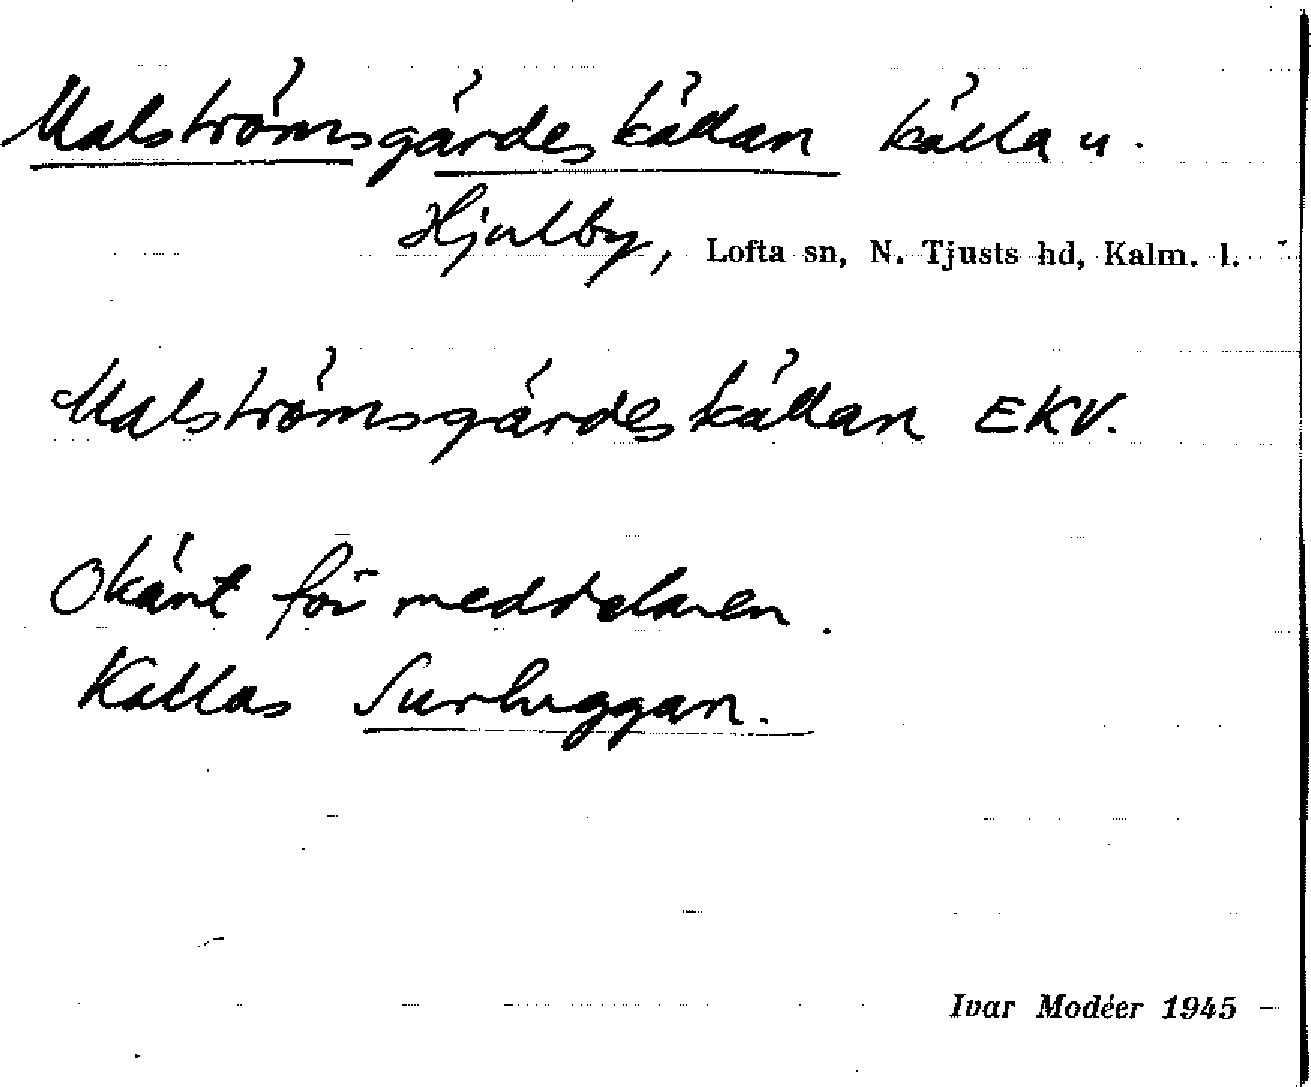 Malströmsgärdeskällan källa u.
Hjulby, Lofta sn, N. Tjusts hd, Kalm. l.
Malströmsgärdeskällan EKV.
Okänt för meddelaren.
Kallas Surluggan.
Ivar Modéer 1945